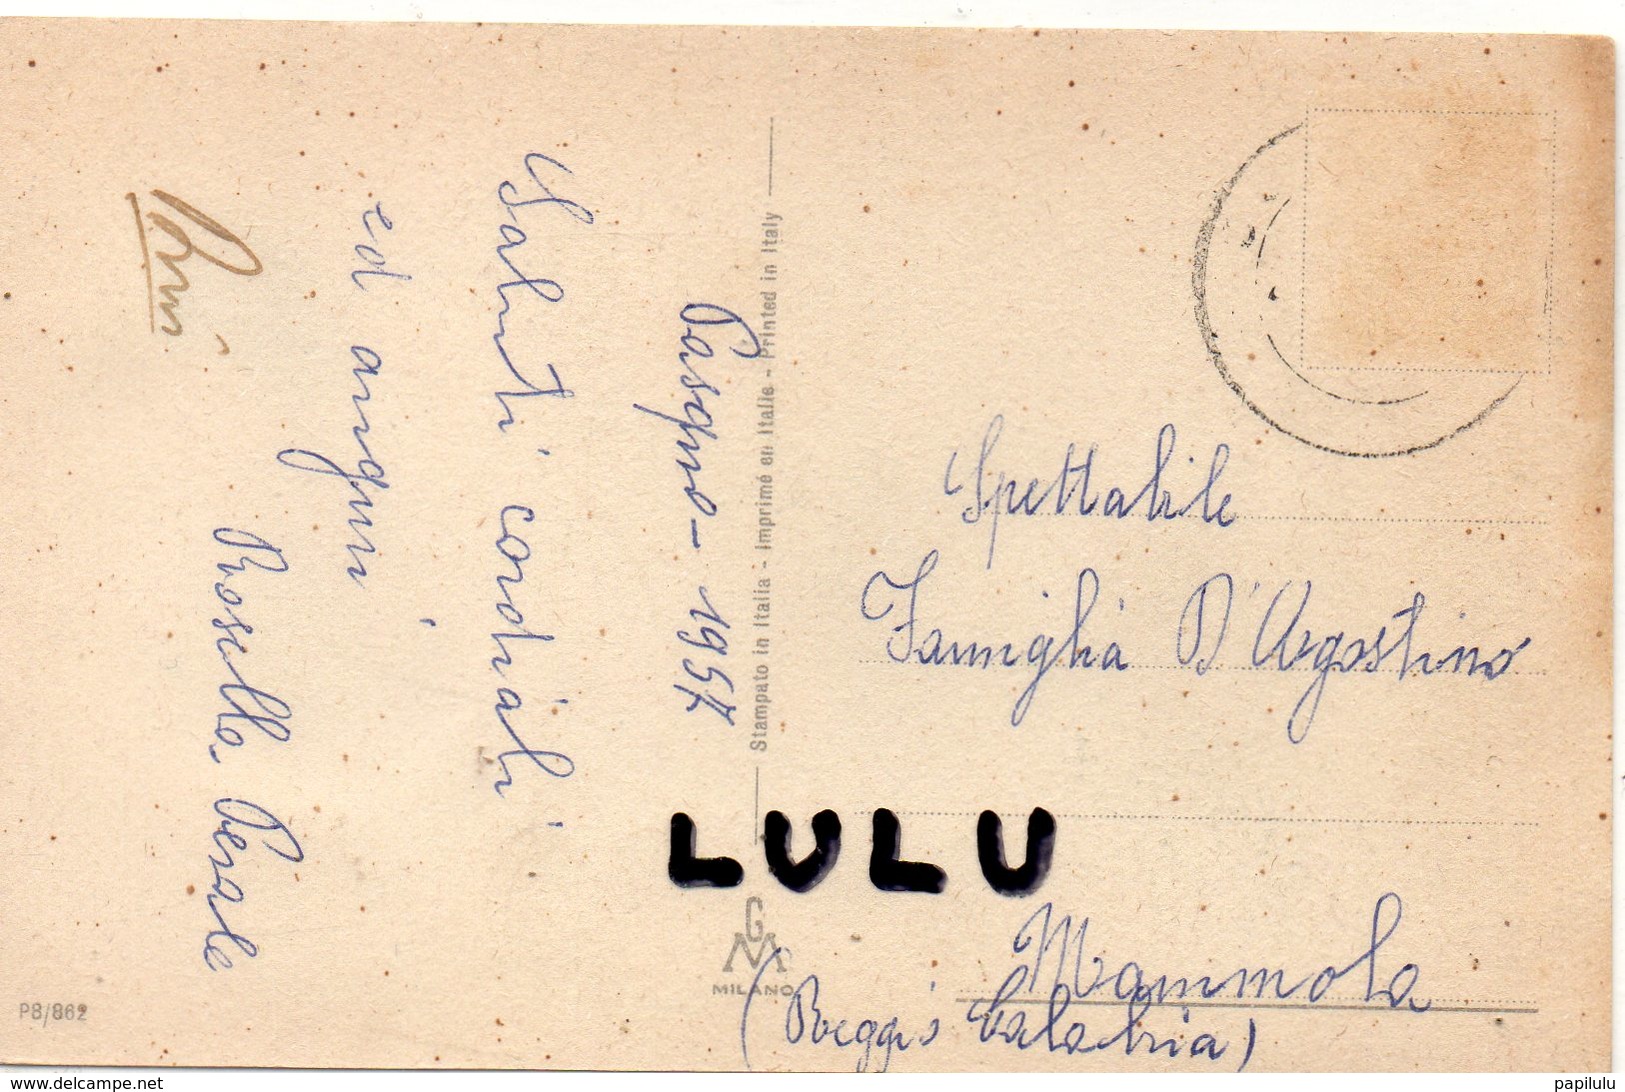 Pasqua - 1957
Saluti cordiali
ed auguri
Rosella Perale
Stampato in Italia - Imprimé en Italie - Printed in Italy
Spettabile
Famiglia D'Agostino
Mammola
(Reggio Calabria)
LULU
GM
MILANO
P8/862
www.delcampe.net
papilulu